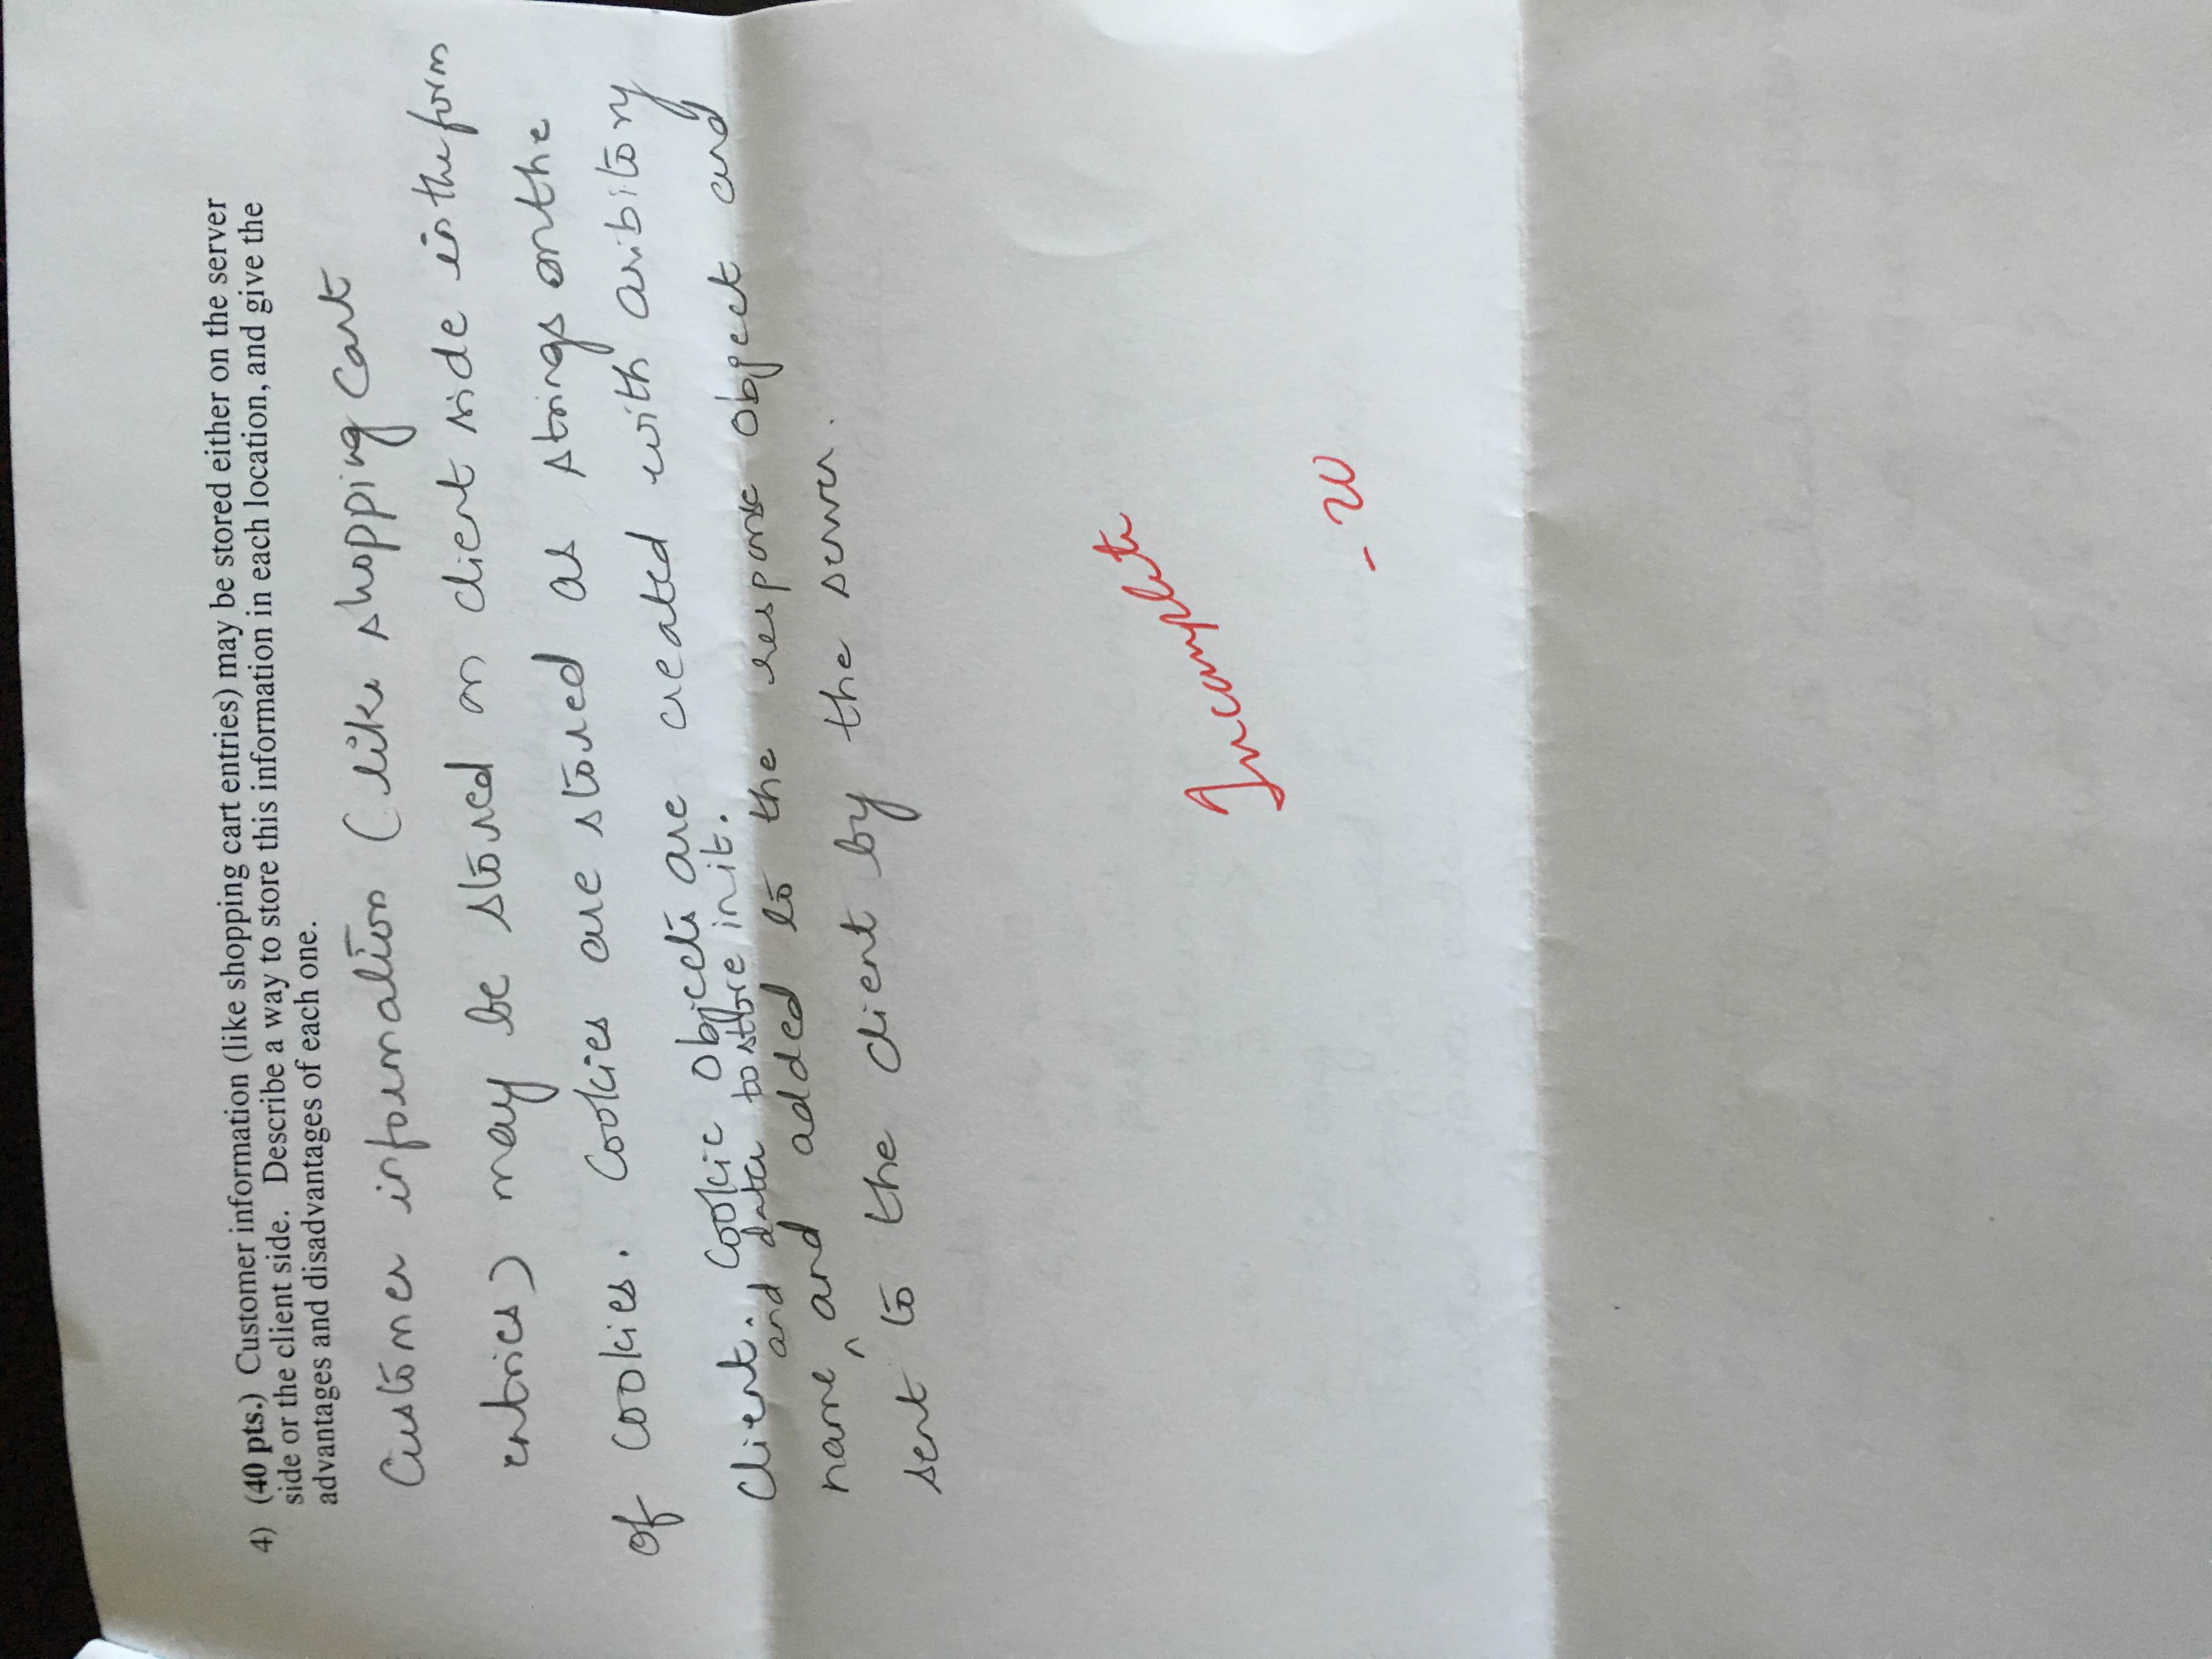 4) (40 pts.) Customer information (like shopping cart entries) may be stored either on the server
side or the client side. Describe a way to store this information in each location, and give the
advantages and disadvantages of each one.
Customer information (like shopping cart
entries) may be stored on client side in the form
of cookies. Cookies are stored as strings on the
Client. Cookie objects are created with aribitory
and data to store in it.
name ^ and added to the response object and
sent to the client by the server.
Incomplete
- 20